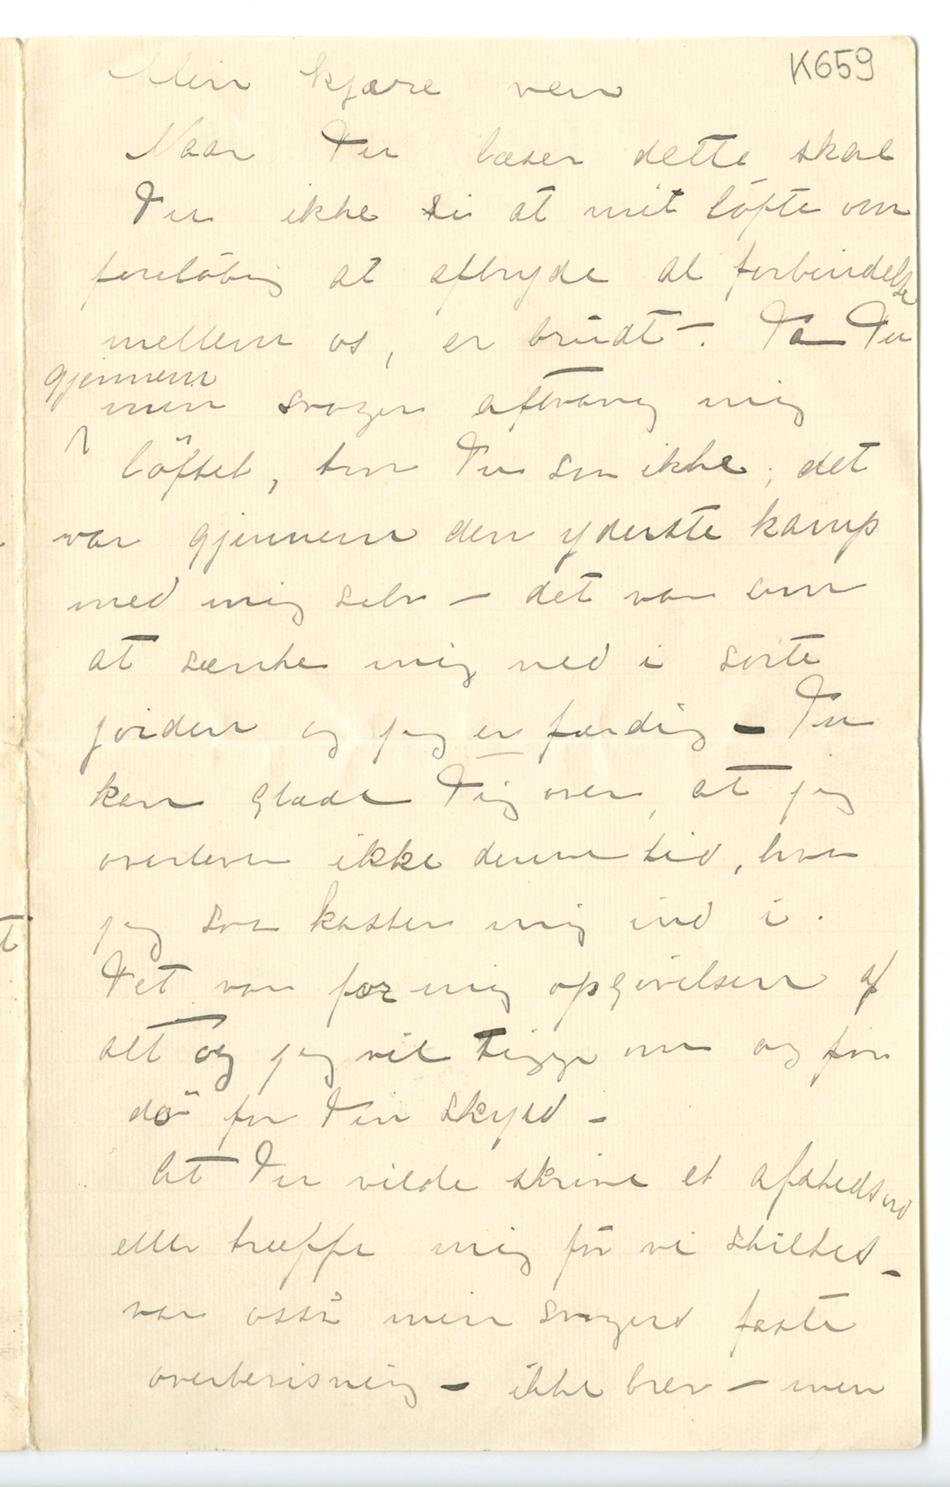 K659
Min kjære ven
Naar Du læser dette skal
Du ikke si at mit löfte om
foreløbig at afbryde al forbindelse
mellem os, er brudt –. Da Du
gjennem
min svoger aftvang mig
löftet, tror Du som ikke, det
var gjennem den yderste kamp
med mig selv – det var som
at sænke mig ned i sorte
jorden og jeg er færdig – Du
kan glæde Dig over, at jeg
overlever ikke denne tid, hvor
jeg saa kaster mig ind i.
Det var for mig opgivelsen af
alt og jeg vil tigge om og for
dö for Din skyld –
At Du vilde skrive et afskedsord
eller træffe mig før vi skiltes –
var osså min svogers faste
overbevisning – ikke brev – men